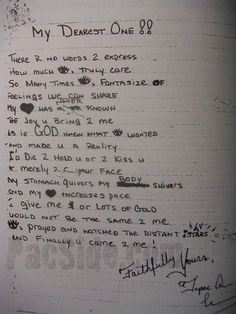 My Dearest One!!
There R no words 2 express
How much 👁 truly care
So many times 👁 fantasize of
feelings we can share
My ♥ has never known
the Joy u bring 2 me
As if GOD knew what 👁 wanted
and made u a reality
I'd Die 2 Hold u or 2 Kiss u
or merely 2 c your face
my stomach quivers my BODY shivers
and my ♥ increases pace
2 give me $ or lots of Gold
would not be the same 2 me
👁 prayed and watched the distant stars
and finally u came 2 me!
Faithfully Yours,
PacSide.com